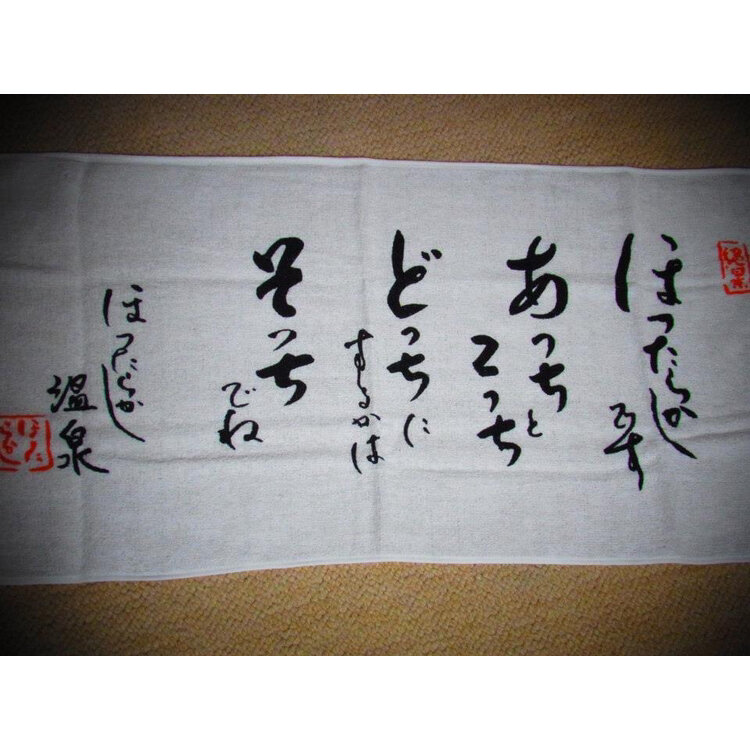 絶景
ほったらかし
です
あっちと
こっち
どっちに
するかは
そっち
でね
ほったらかし
温泉
ほった
らかし